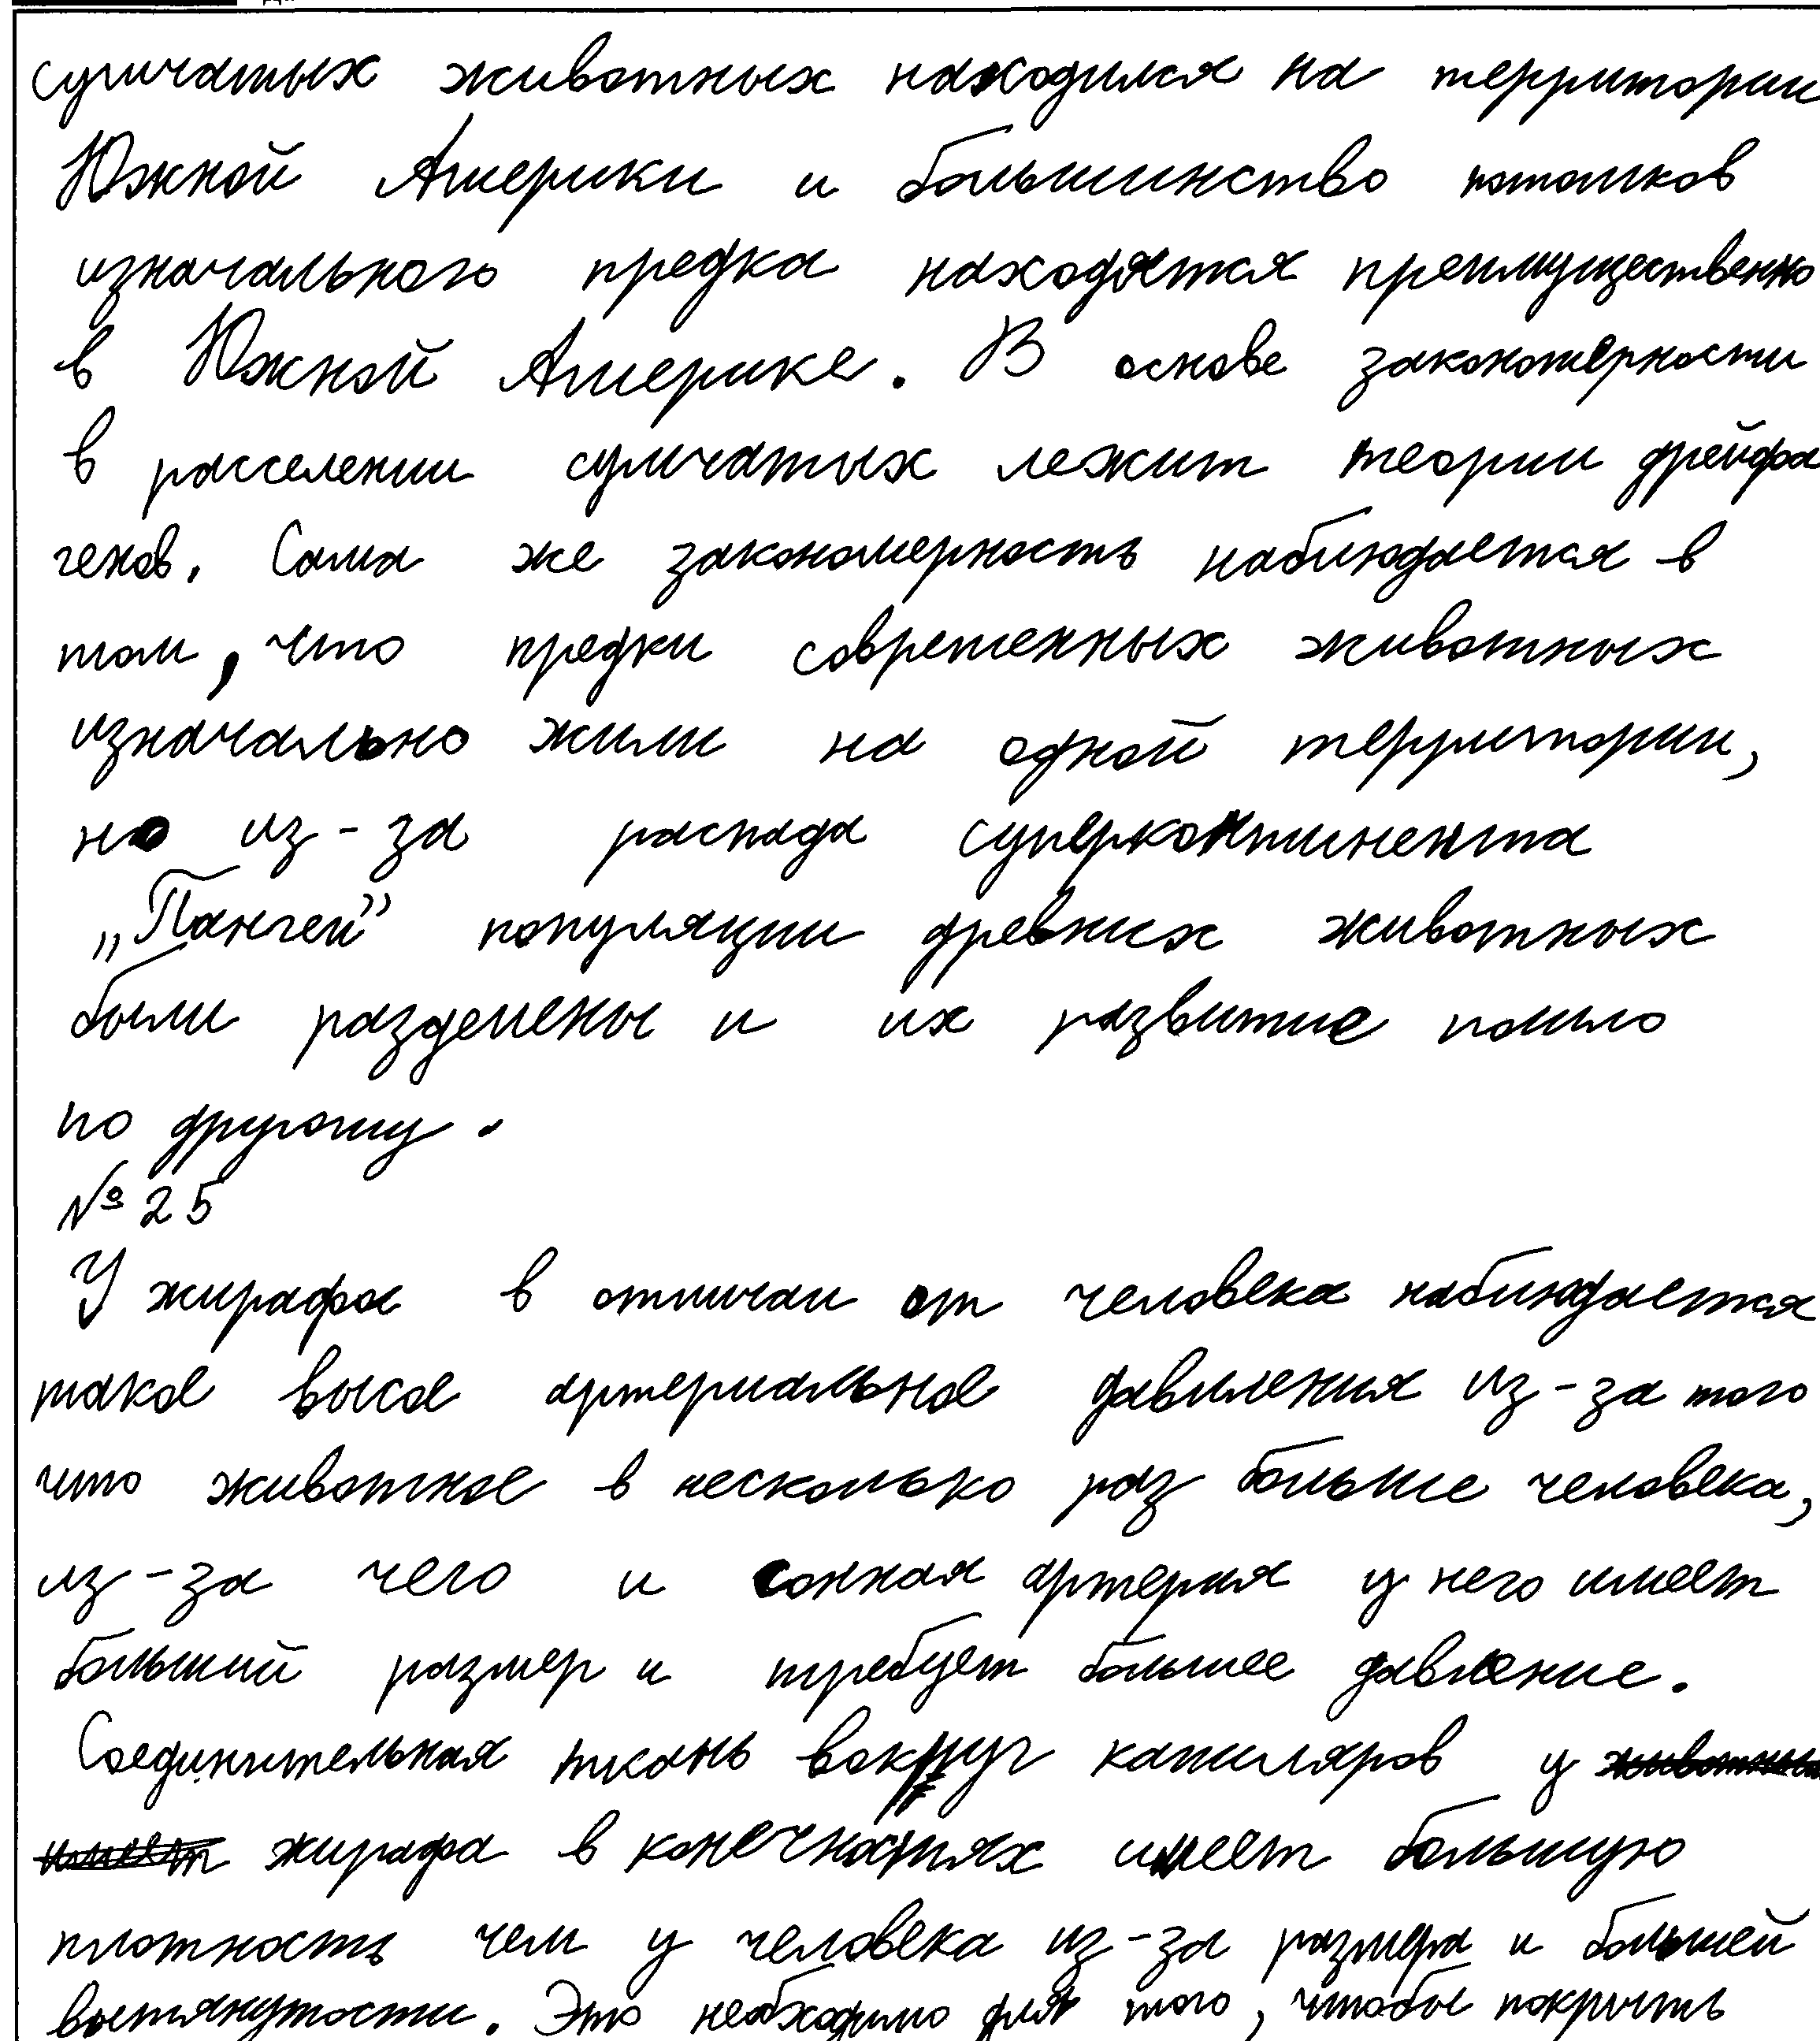 сумчатых животных находился на территории
Южной Америки и большинство потомков
изначального предка находятся преимущественно
в Южной Америке. В основе закономерности
в расселении сумчатых лежит теории дрейфа
генов. Сама же закономерность наблюдается в
том, что предки современных животных
изначально жили на одной территории,
но из-за распада суперконтинента
„Пангеи” популяции древних животных
были разделены и их развитие пошло
по другому.
№ 25
У жирафа в отличаи от человека наблюдается
такое высое артериальное давиления из-за того
что животное в несколько раз больше человека,
из-за чего и сонная артерия у него имеет
больший размер и требует большее давление.
Соединительная ткань вокруг капиляров у
жирафа в конечностях имеет большую
плотность чем у человека из-за размера и большей
вытянутости. Это необходимо для того, чтобы покрыть